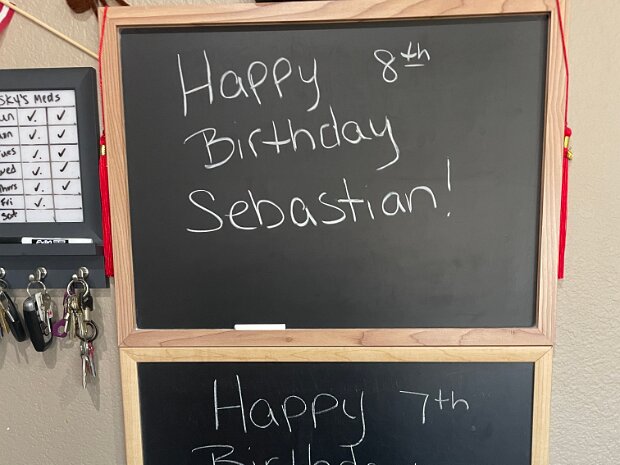 Sky's Meds
un ✓ ✓
on ✓ ✓
ues ✓ ✓
wed ✓ ✓
hurs ✓ ✓
Fri ✓
sat
EXPO
Happy 8th
Birthday
Sebastian!
Happy 7th
Birthday